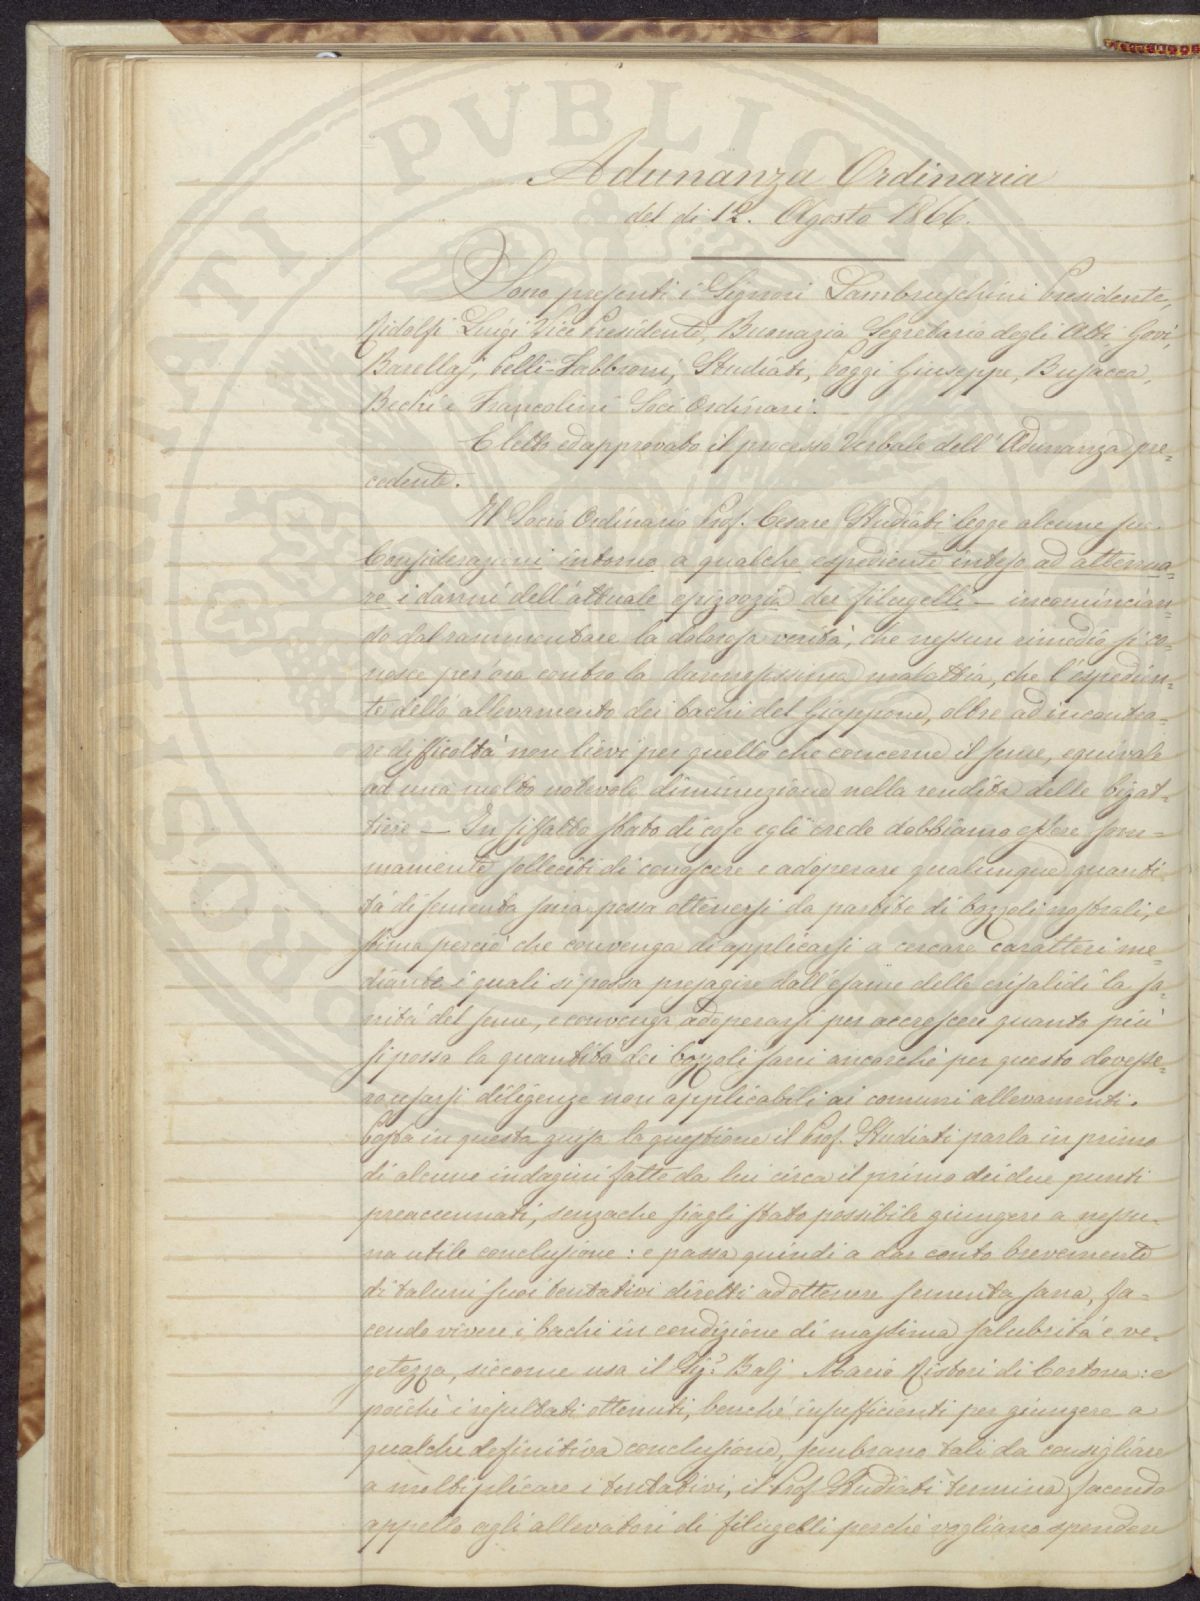 Adunanza Ordinaria
del dì 12. Agosto 1866.
Sono presenti i Signori Lambruschini Presidente,
Ridolfi Luigi Vice Presidente, Buonazia Segretario degli Atti, Govi,
Barellaj, Pelli-Fabbroni, Studiati, Poggi Giuseppe, Busacca,
Bechi e Francolini Soci Ordinari.
E letto ed approvato il processo Verbale dell'Adunanza pre=
cedente.
Il Socio Ordinario Prof. Cesare Studiati legge alcune sue
Considerazioni intorno a qualche espediente inteso ad attenua=
re i danni dell'attuale epizoozia dei filugelli — incomincian=
do dal rammentare la dolorosa verità, che nessun rimedio si co=
nosce per ora contro la dannosissima malattia, che l'espedien=
te dello allevamento dei bachi del Giappone, oltre ad incontra=
re difficoltà non lievi per quello che concerne il seme, equivale
ad una molto notevole diminuzione nella rendita delle bigat=
tiere — In siffatto stato di cose egli crede dobbiamo essere som=
mamente solleciti di conoscere e adoperare qualunque quanti
tà di sementa sana possa ottenersi da partite di bozzoli nostrali, e
stima perciò che convenga di applicarsi a cercare caratteri me=
diante i quali si possa presagire dall'esame delle crisalidi la sa=
nità del seme, e convenga adoperarsi per accrescere quanto più
si possa la quantità dei bozzoli sani ancorchè per questo dovesse=
ro usarsi diligenze non applicabili ai comuni allevamenti.
Posta in questa guisa la questione il Prof. Studiati parla in primo
di alcune indagini fatte da lui circa il primo dei due punti
preaccennati, senzache siagli stato possibile giungere a nessu=
na utile conclusione: e passa quindi a dar conto brevemente
di taluni suoi tentativi diretti ad ottenere sementa sana, fa=
cendo vivere i bachi in condizione di massima salubrità e ve=
getezza, siccome usa il Sig.r Balj Mario Ristori di Cortona: e
poichè i resultati ottenuti, benchè insufficienti per giungere a
qualche definitiva conclusione, sembrano tali da consigliare
a moltiplicare i tentativi, il Prof. Studiati termina facendo
appello agli allevatori di filugelli perchè vogliano spendere
PUBLICAE